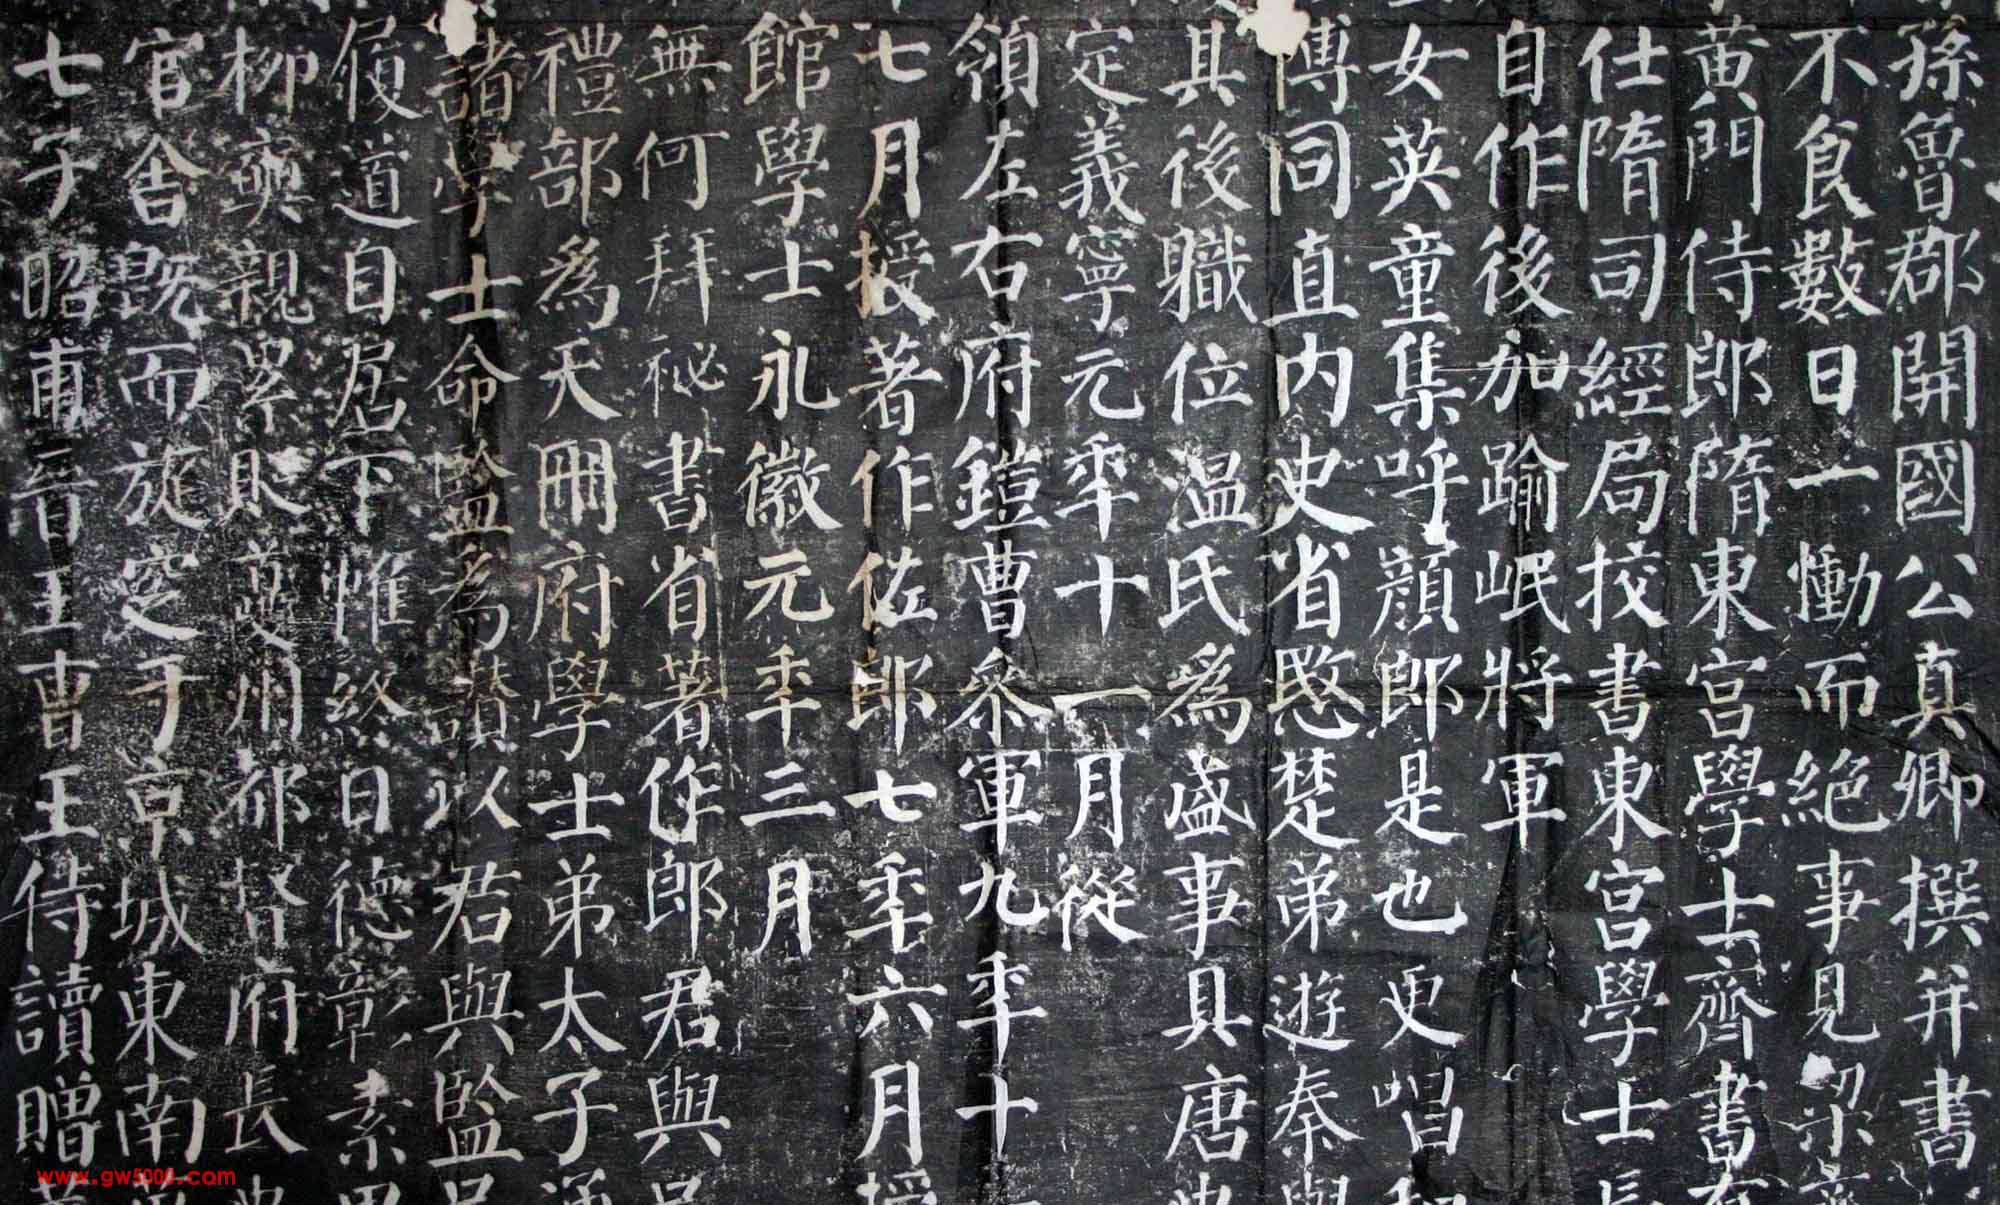 孫魯郡開國公真卿撰并書
不食數日一慟而絕事見梁齊
黃門侍郎隋東宮學士齊書有
仕隋司經局挍書東宮學士長
自作後加踰岷將軍
女英童集呼顏郎是也更唱和
博同直内史省愍楚弟遊秦與
具後職位温氏爲盛事具唐史
定義寧元年十一月從
領左右府鎧曹參軍九年十一
七月授著作佐郎七年六月授
館學士永徽元年三月
無何拜祕書省著作郎君與兄
禮部爲天冊府學士弟太子通
諸學士命監爲讚以君與監兄
履道自居下惟終日德彰素里
柳奭親累貶夔州都督府長史
官舍既而旋窆于京城東南萬
七子昭甫晉王曹王侍讀贈華
www.gw5000.com